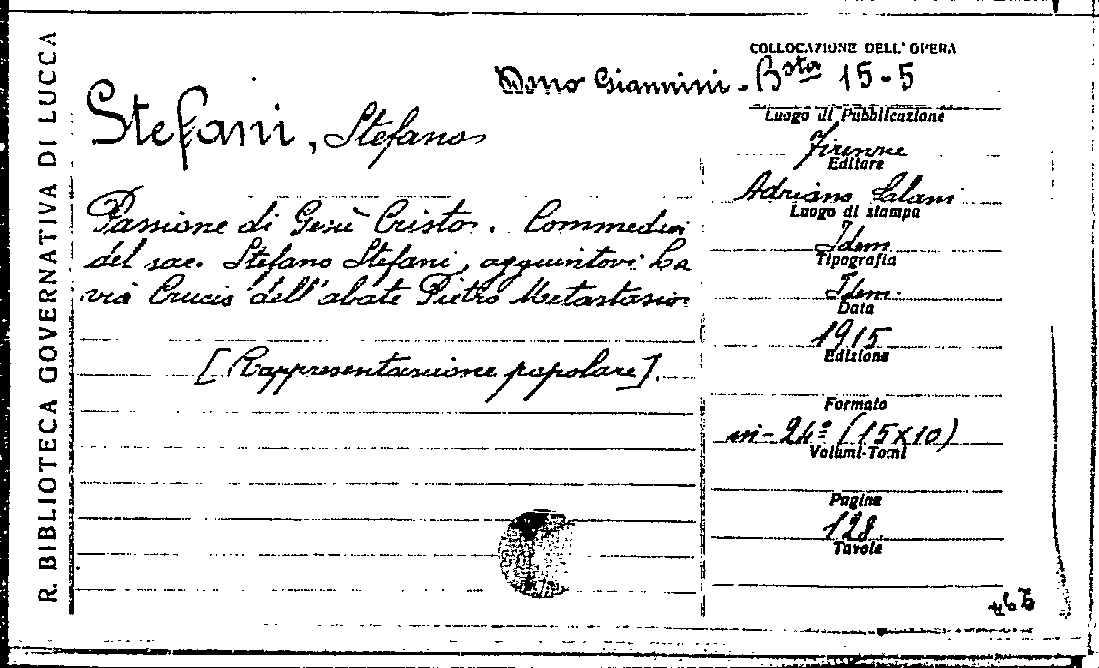 R. BIBLIOTECA GOVERNATIVA DI LUCCA
COLLOCAZIONE DELL'OPERA
Dono Giannini - Bsta 15-5
Stefani, Stefano
Passione di Gesù Cristo. Commedia
del sac. Stefano Stefani, aggiuntovi: La
via Crucis dell'abate Pietro Metastasio.
[Rappresentazione popolare].
Luogo di Pubblicazione
Firenze
Editore
Adriano Salani
Luogo di stampa
Idem
Tipografia
Idem.
Data
1915
Edizione
Formato
in-24º (15x10)
Volumi-Tomi
Pagine
128
Tavole